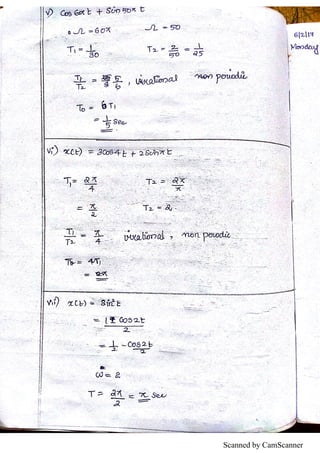 v) Cos 60πt + Sin 50π t
Ω = 60π Ω = 50
6/2/17
Monday
T₁ = 1/30 T₂ = 2/50 = 1/25
T₁/T₂ = 5/6 , irrational non periodic
T₀ = 6T₁
= 1/5 Sec
vi) x(t) = 3Cos4t + 2Sinπt
T₁ = 2π/4 T₂ = 2π/π
= π/2 T₂ = 2
T₁/T₂ = π/4 irrational , non periodic
T₀ = 4T₁
= 2π
vii) x(t) = Sin²t
= 1 - Cos2t / 2
= 1/2 - Cos2t/2
ω = 2
T = 2π/2 = π Sec
Scanned by CamScanner